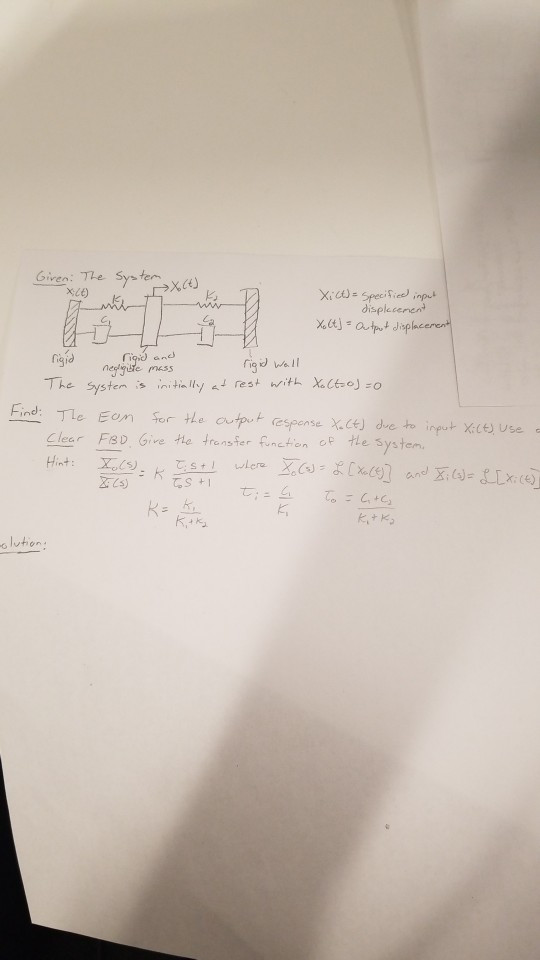 Given: The System
Xi(t)
K1
→Xo(t)
K2
C1
C2
rigid
rigid and
negligible mass
rigid wall
Xi(t) = Specified input
displacement
Xo(t) = Output displacement
The System is initially at rest with Xo(t=0) = 0
Find: The EOM for the output response Xo(t) due to input Xi(t). Use
Clear FBD. Give the transfer function of the system.
Hint: X̄o(s)/X̄i(s) = K (τi s + 1)/(τo s + 1) where X̄o(s) = ℒ[Xo(t)] and X̄i(s) = ℒ[Xi(t)]
K = K1/(K1+K2) τi = C1/K1 τo = (C1+C2)/(K1+K2)
olution: